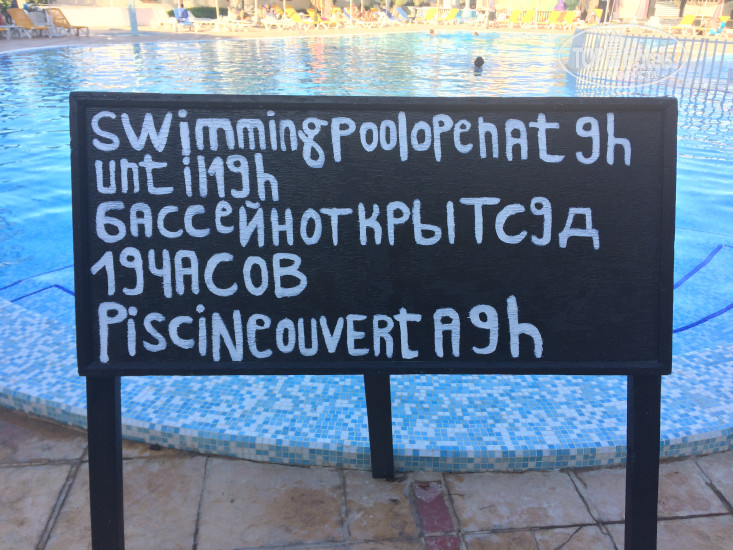 swimmingpoolopenAt 9h
until19h
бАссейноткРЫТс9Д
19ЧАСОВ
PisciNeouvertA9h